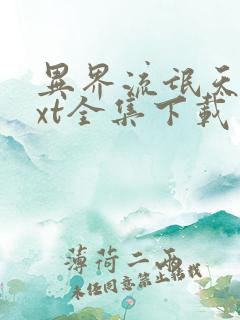 異界流氓天
xt全集下載
薄荷二两
未经同意禁止转载